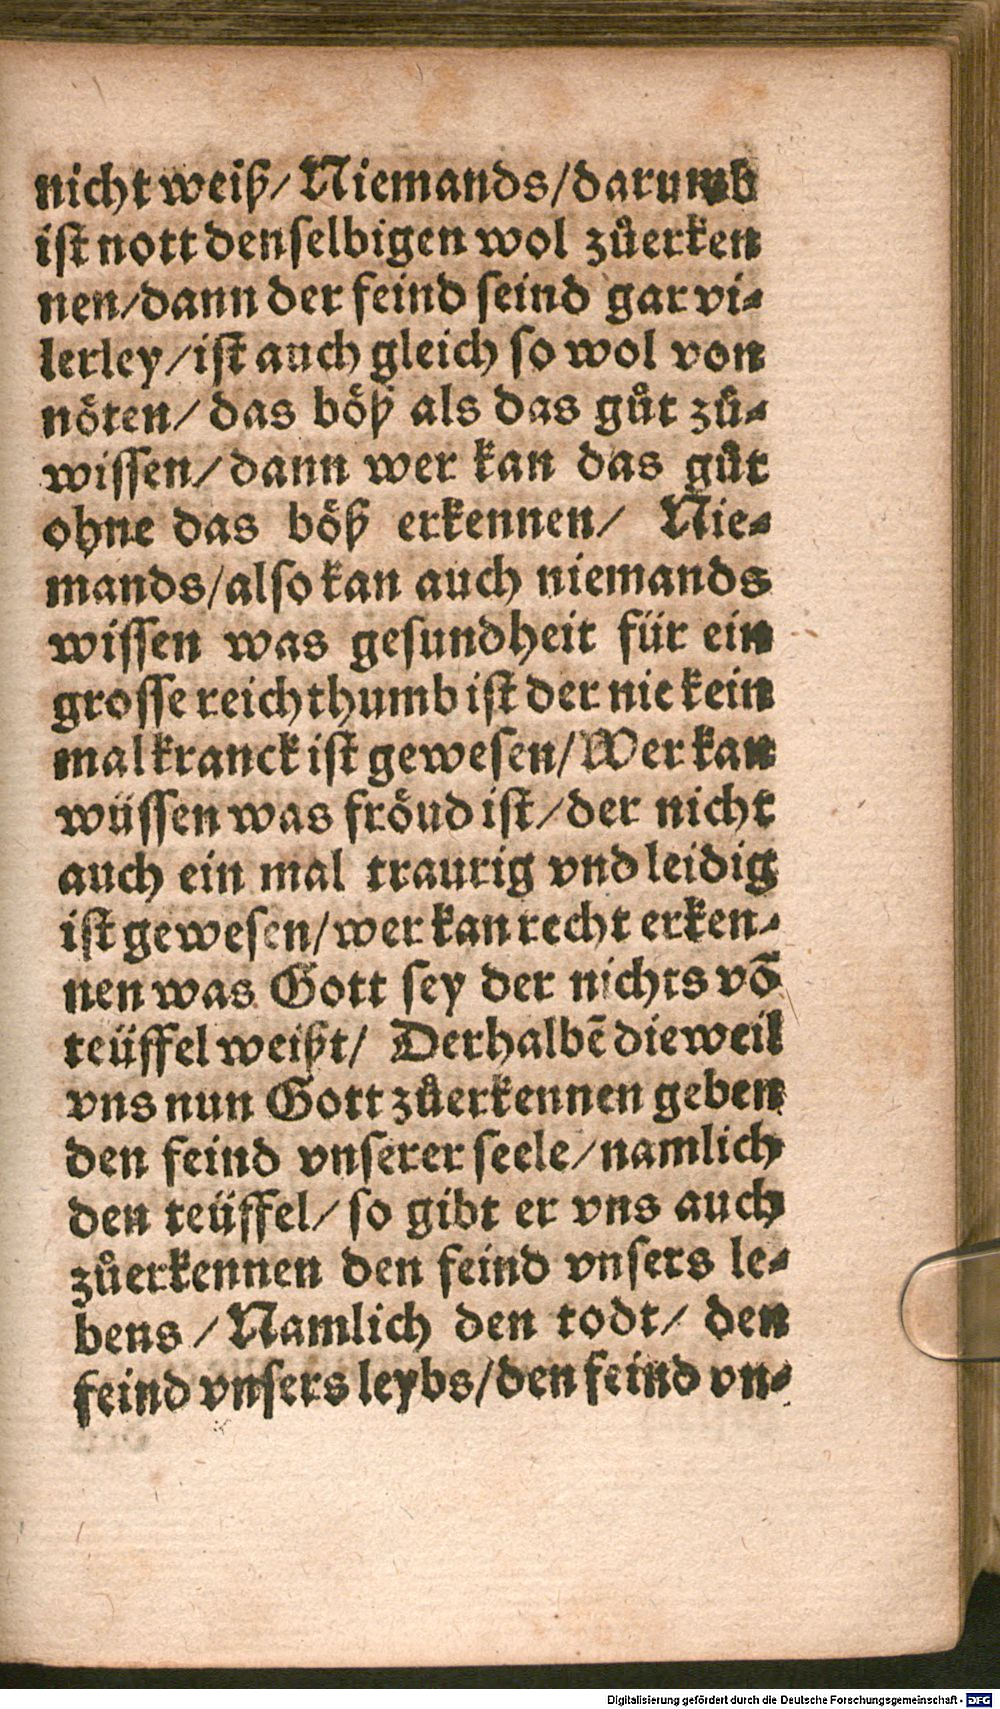 nicht weiß/ Niemands/darumb
ist nott denselbigen wol zůerken
nen/dann der feind seind gar vi-
lerley/ist auch gleich so wol von
nöten/ das böß als das gůt zů-
wissen/dann wer kan das gůt
ohne das böß erkennen/ Nie-
mands/also kan auch niemands
wissen was gesundheit für ein
grosse reichthumb ist der nie kein
mal kranck ist gewesen/Wer kan
wüssen was fröud ist/der nicht
auch ein mal traurig vnd leidig
ist gewesen/wer kan recht erken-
nen was Gott sey der nichts võ
teüffel weißt/ Derhalbẽ dieweil
vns nun Gott zůerkennen geben
den feind vnserer seele/namlich
den teüffel/ so gibt er vns auch
zůerkennen den feind vnsers le-
bens /Namlich den todt/ den
feind vnsers leybs/den feind vn-
Digitalisierung gefördert durch die Deutsche Forschungsgemeinschaft - DFG